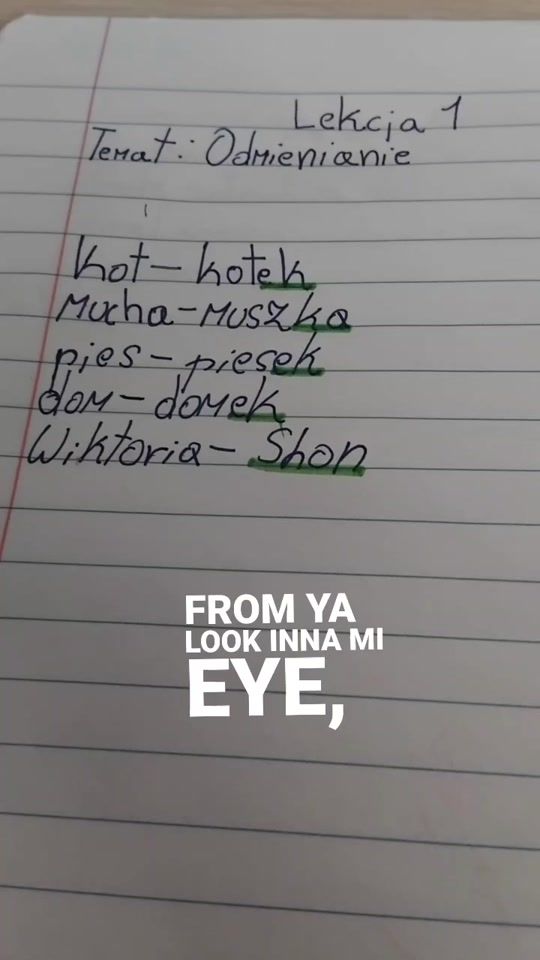 Lekcja 1
Temat: Odmienianie
kot - kotek
Mucha - Muszka
pies - piesek
dom - domek
Wiktoria - Shon
FROM YA
LOOK INNA MI
EYE,